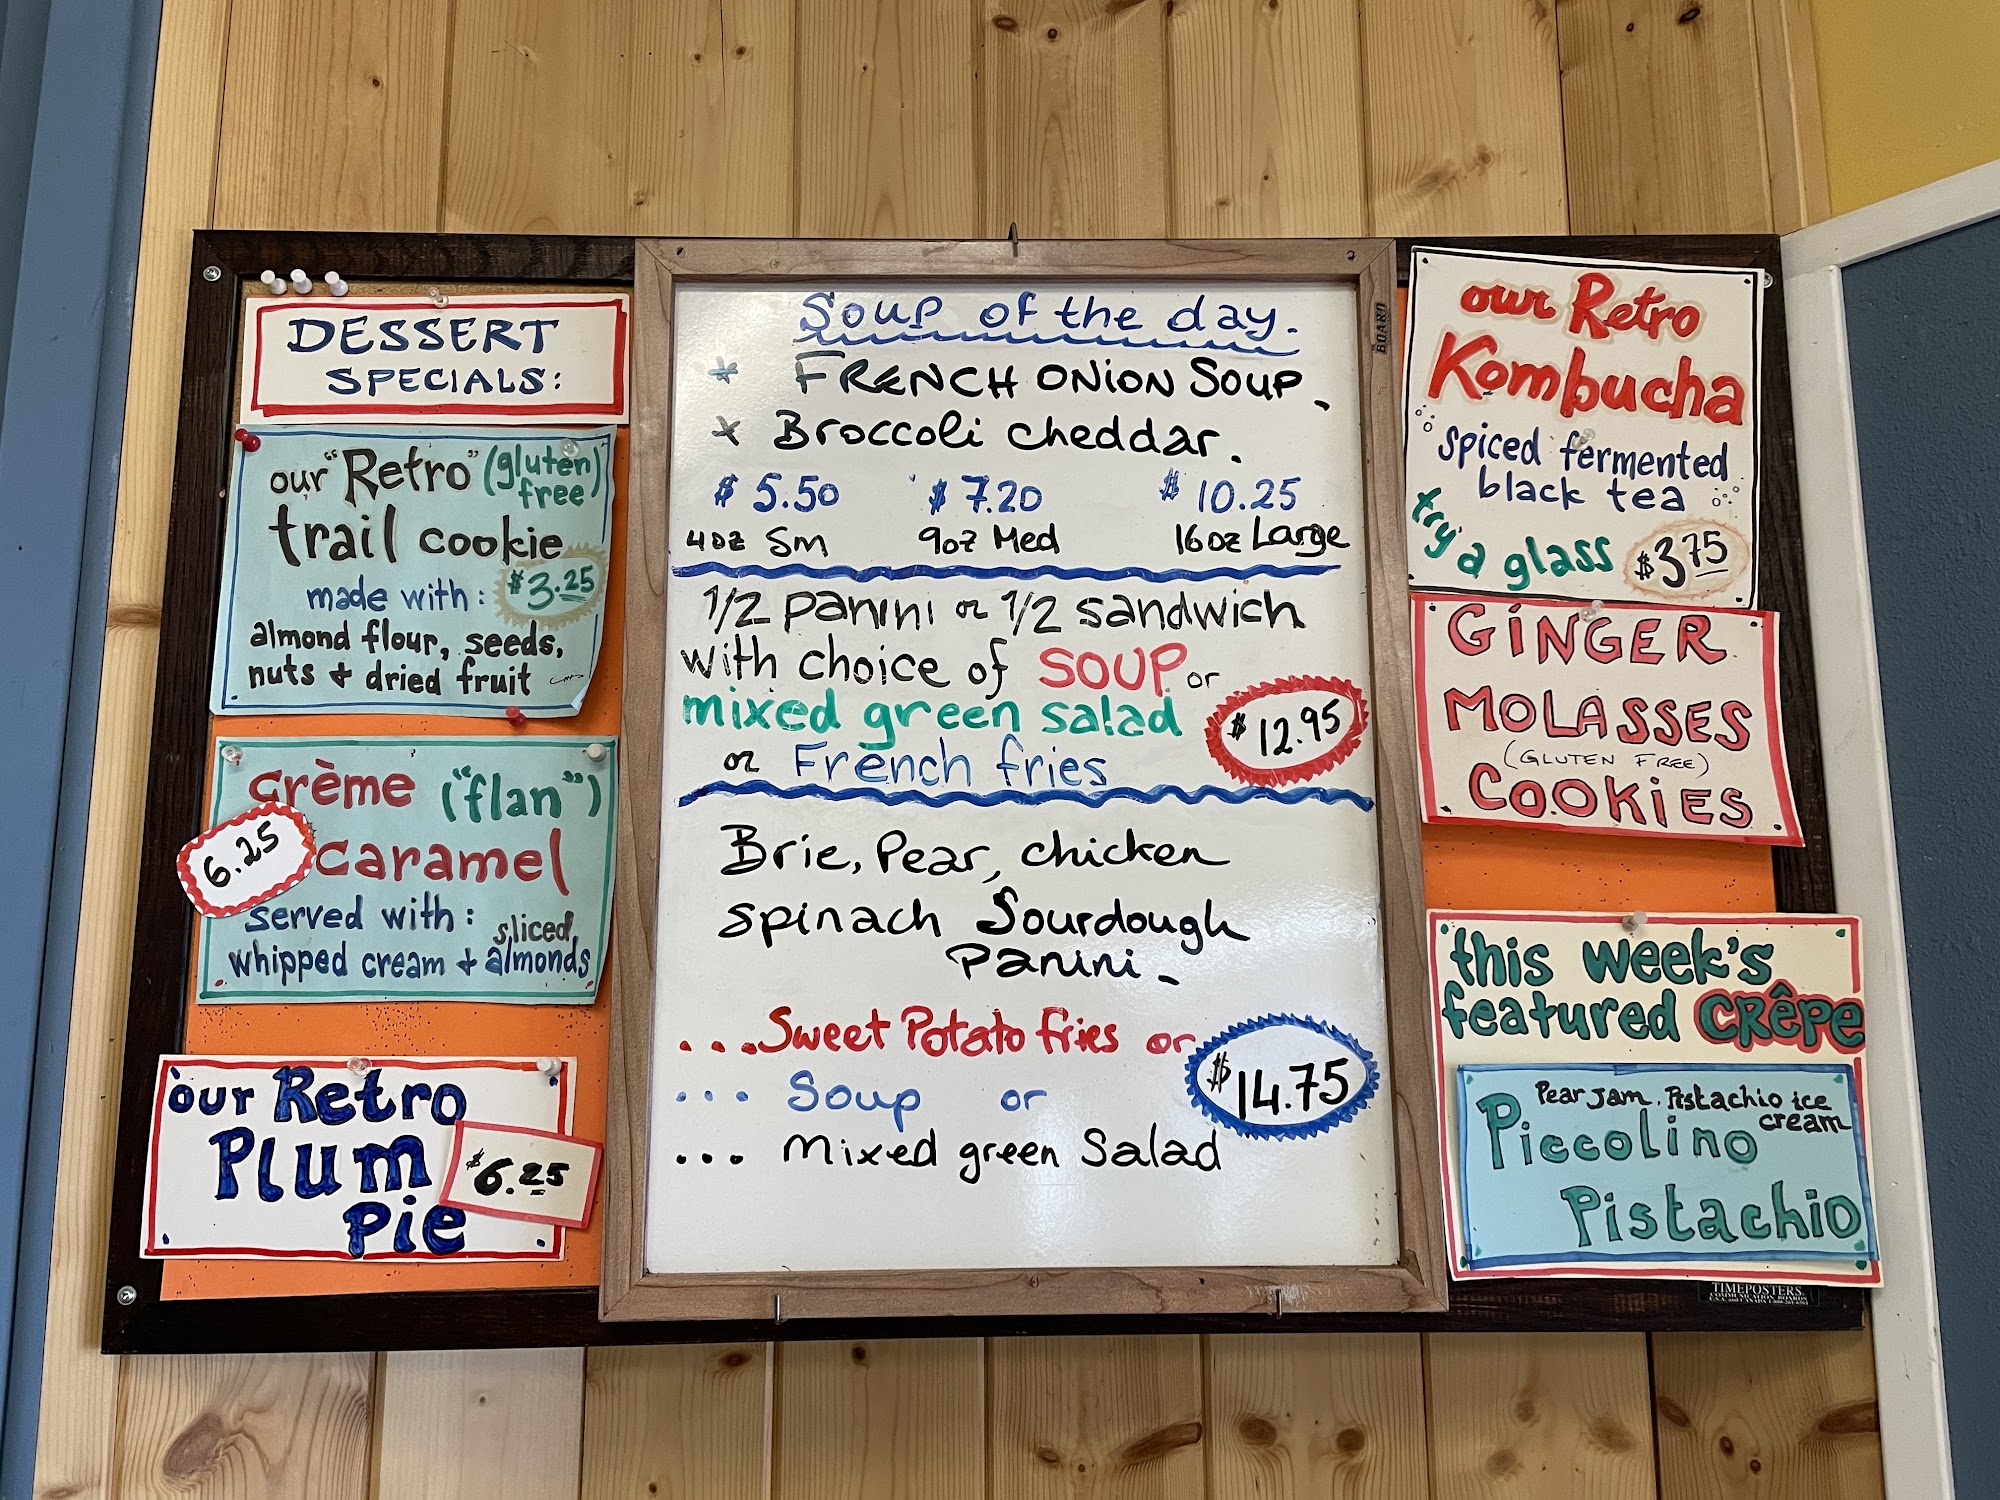 DESSERT
SPECIALS:
our "Retro" (gluten free)
trail cookie
made with: $3.25
almond flour, seeds,
nuts + dried fruit
crème ("flan")
6.25
caramel
served with: sliced
whipped cream + almonds
our Retro
Plum
Pie
$6.25
Soup of the day.
* FRENCH ONION SOUP.
* Broccoli cheddar.
$ 5.50 $ 7.20 $ 10.25
4oz Sm 9oz Med 16oz Large
1/2 panini or 1/2 sandwich
with choice of SOUP or
mixed green salad
$ 12.95
or French fries
Brie, Pear, chicken
spinach Sourdough
Panini.
...Sweet Potato fries or
$14.75
... Soup or
... Mixed green Salad
BOARD
our Retro
Kombucha
spiced fermented
black tea
try a glass $3.75
GINGER
MOLASSES
(GLUTEN FREE)
COOKIES
this week's
featured CRÊPE
Pear Jam. Pistachio ice
cream
Piccolino
Pistachio
TIMEPOSTERS